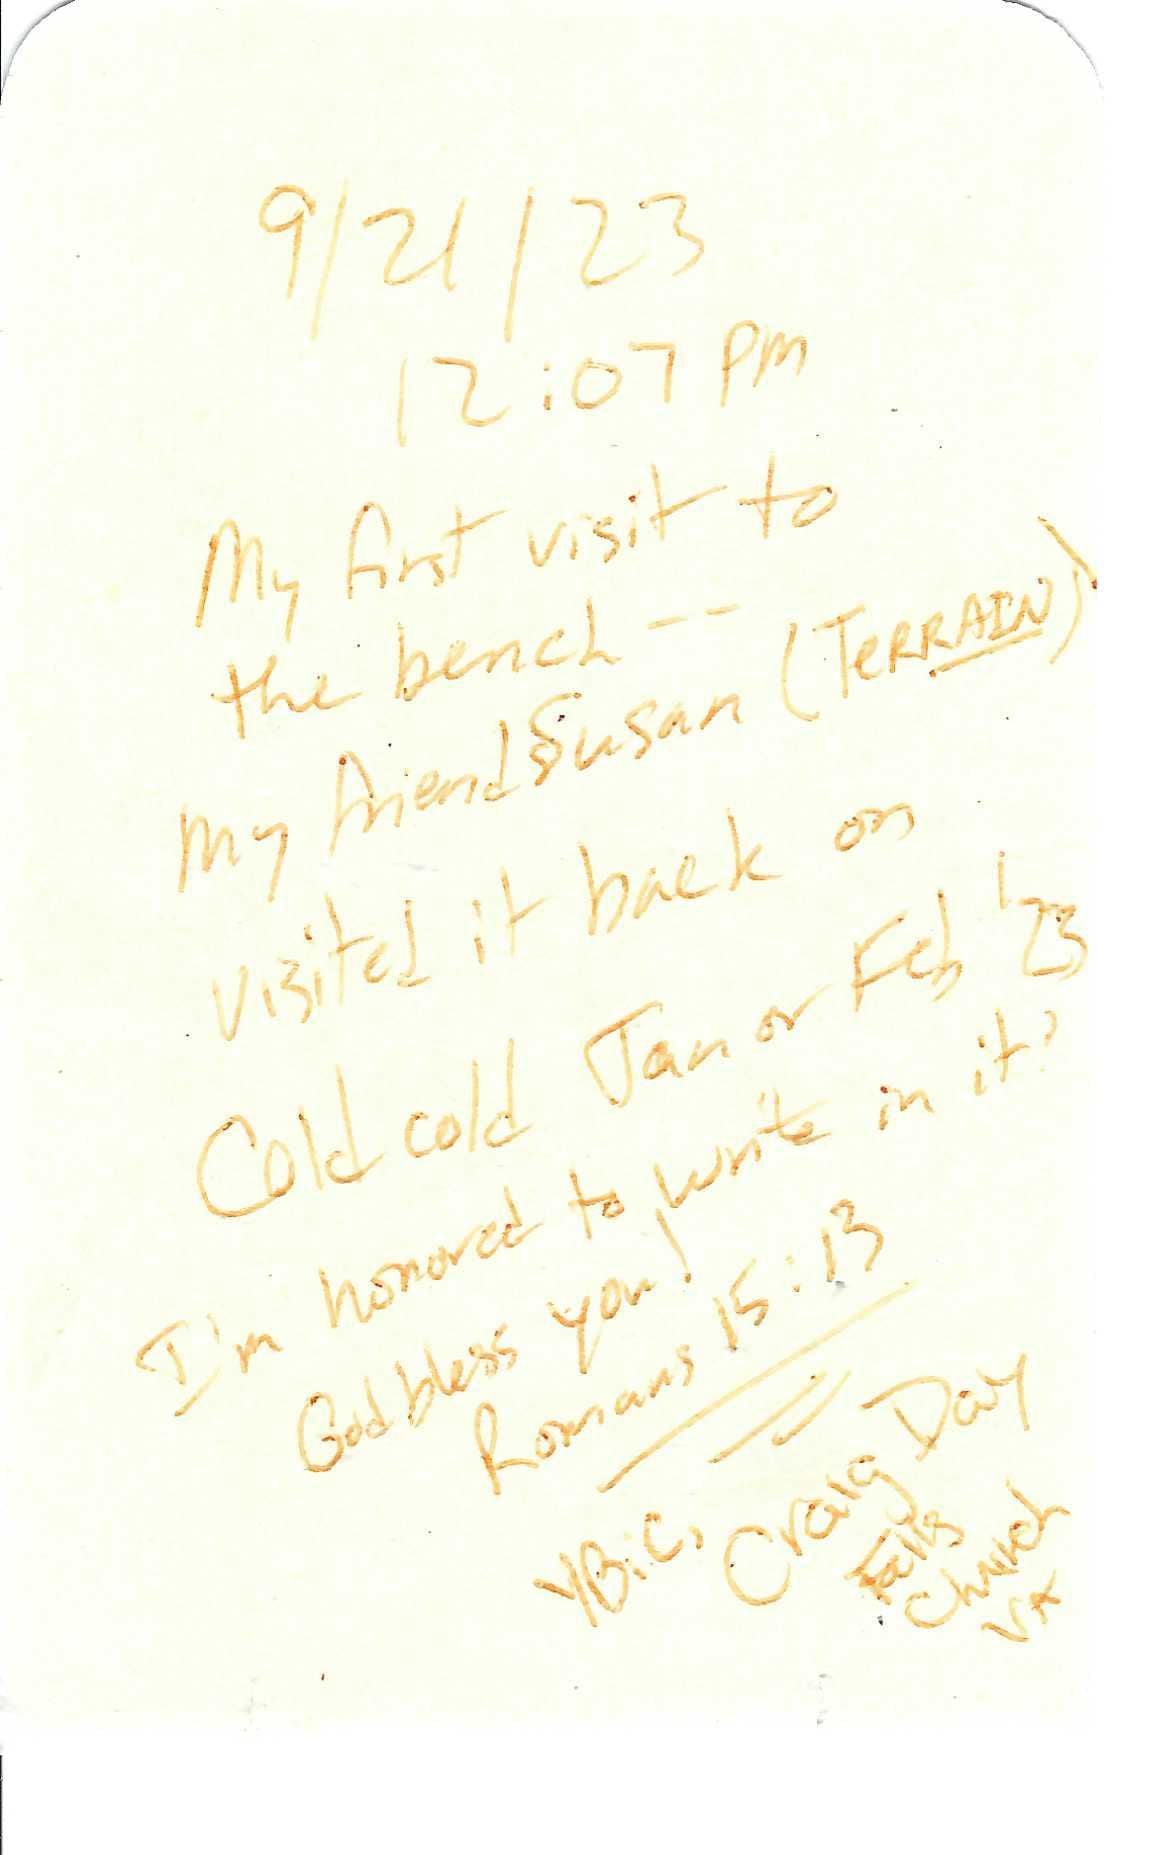 9/21/23
12:07 PM
My first visit to
the bench --
My friend Susan (TeRRAIN)
visited it back on
Cold cold Jan or Feb '23
I'm honored to write in it!
God bless you!
Romans 15:13
YBiC,
Craig Day
Falls
Church
VA